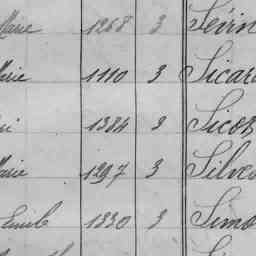 Marie 1268 3 Sévin
Marie 1110 3 Sicar
1384 3 Sicot
Marie 1297 3 Silves
Emile 1330 3 Simo